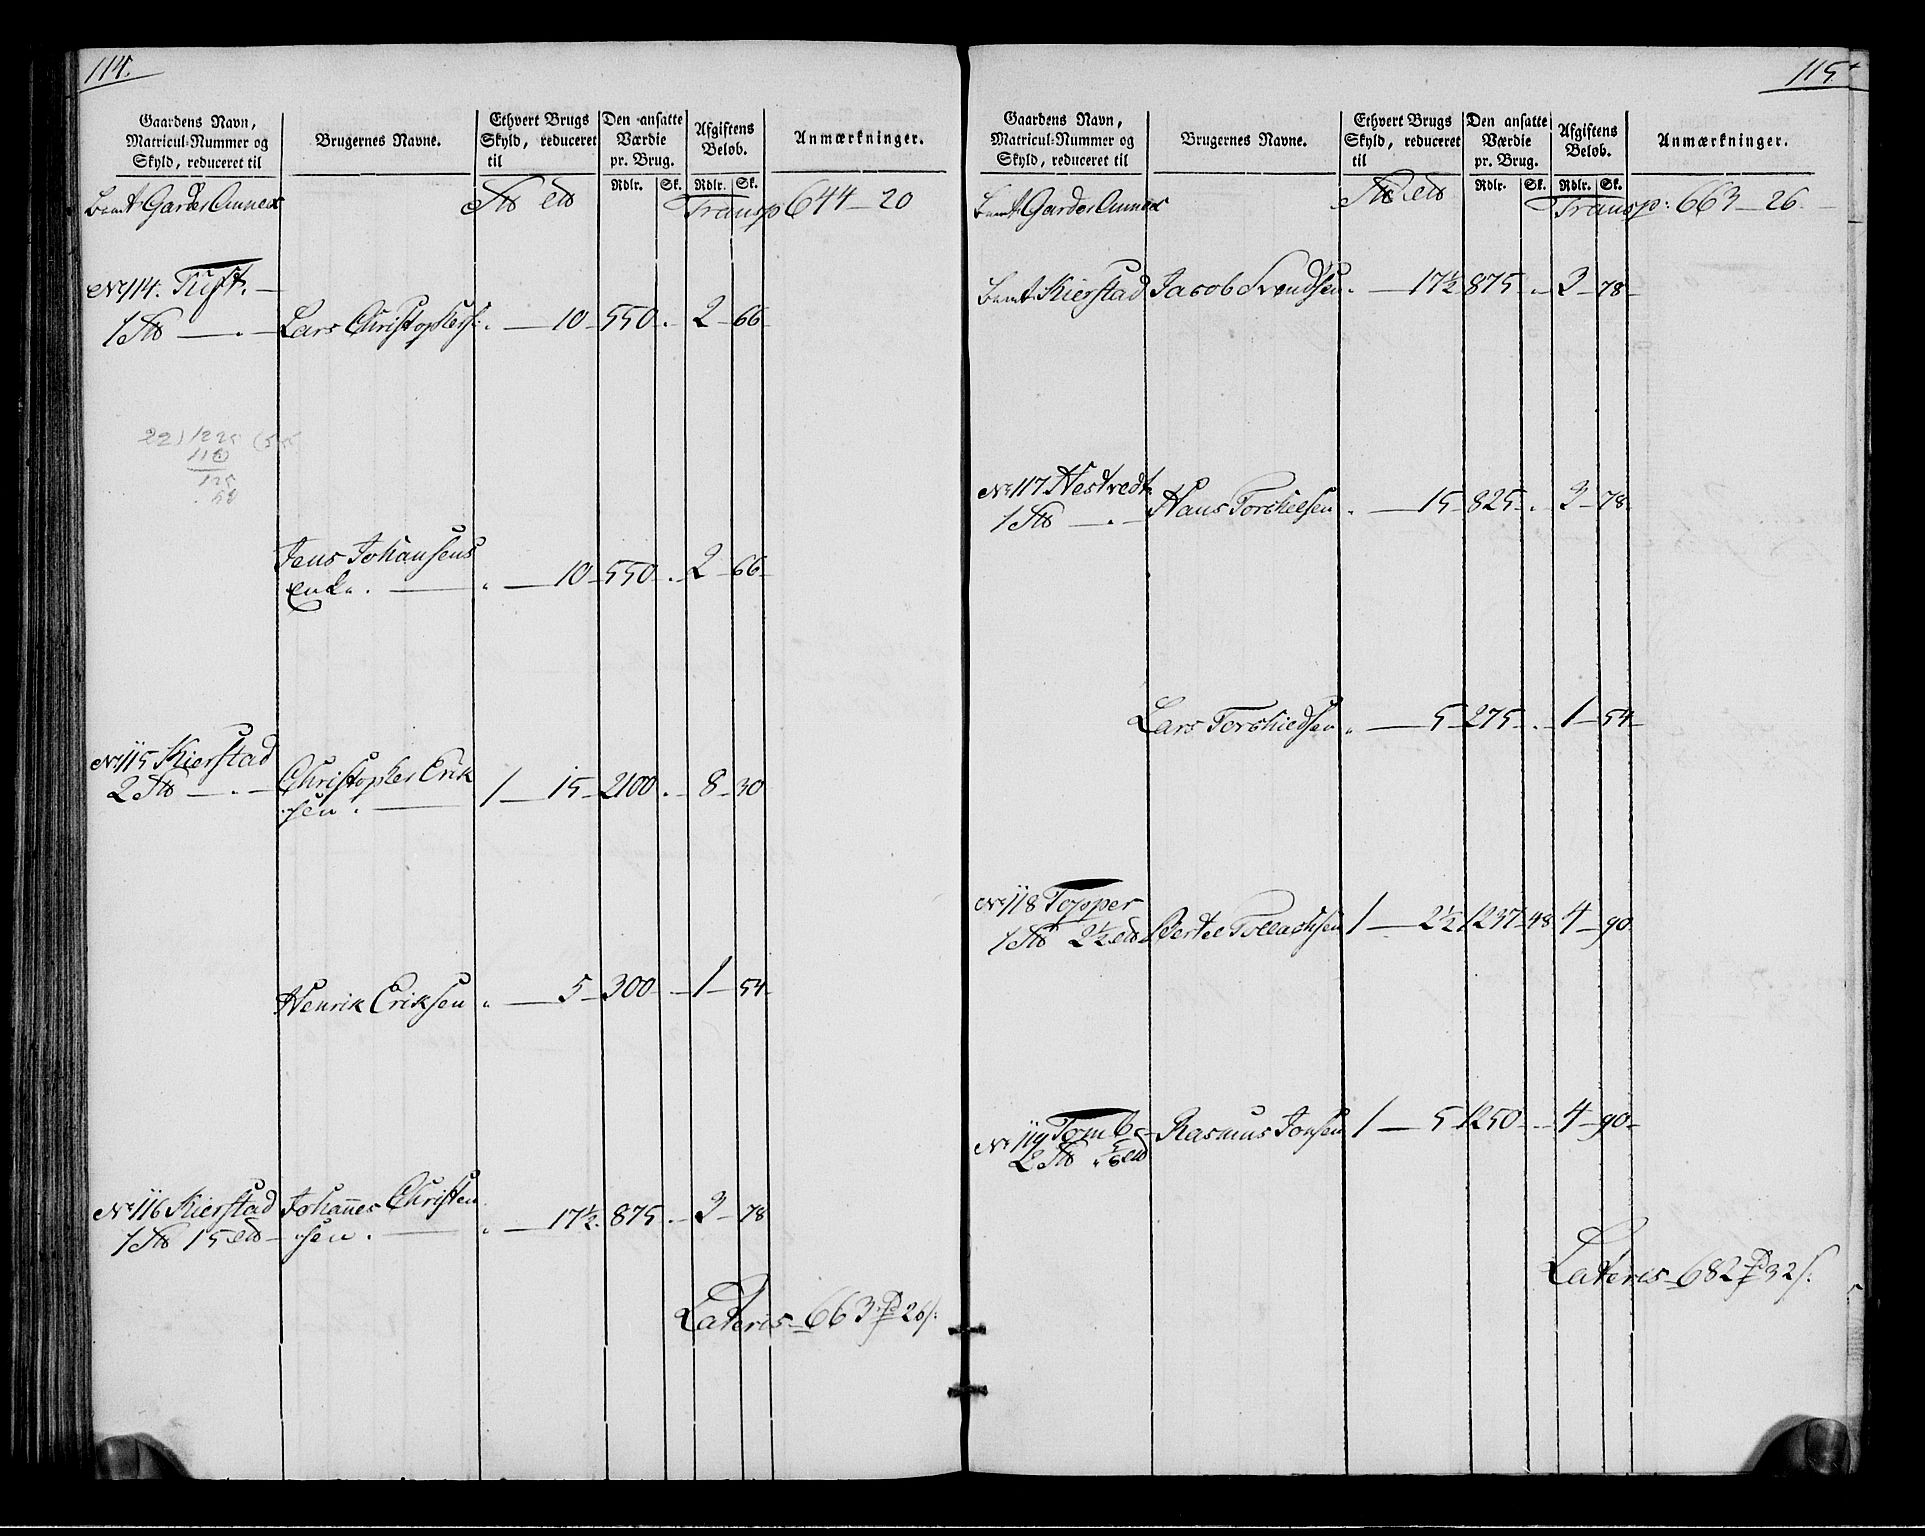 114.
Gaardens Navn, Matricul-Nummer og Skyld, reduceret til
Brugernes Navne.
Ethvert Brugs Skyld, reduceret til
Den ansatte Værdie pr. Brug.
Afgiftens Beløb.
Anmærkninger.
Rdlr. Sk. Rdlr. Sk.
Transp 644 - 20
No 114. Tuft.
1 - Lars Christophers: " - 10 - 550 - 2 - 66
22) 1225 (55
110
125
Jens Johansens
Enke. " - 10 - 550 - 2 - 66
No 115 Kierstad
2 - Christopher Erik
sen. 1 - 15 - 2100 - 8 - 30
Henrik Eriksen " - 5 - 300 - 1 - 54
No 116 Kierstad Johannes Christen
1 15 sen. " - 17½ 875 - 3 - 78
Lateris - 663 26 s.
115
Gaardens Navn, Matricul-Nummer og Skyld, reduceret til
Brugernes Navne.
Ethvert Brugs Skyld, reduceret til
Den ansatte Værdie pr. Brug.
Afgiftens Beløb.
Anmærkninger.
Rdlr. Sk. Rdlr. Sk.
Transp: 663 - 26
Kierstad Jacob Svendsen " - 17½ 875 - 3 - 78
No 117 Hestvedt
1 - Hans Torchelsen " - 15 - 825 - 3 - 78
Lars Torchieldsen " - 5 - 275 - 1 - 54
No 118 Topper
1 2½ Bertel Tollachsen 1 - 2½ 1237 - 48 4 - 90
No 119 Rasmus Jonsen 1 - 5 1250 - 4 - 90
Lateris - 682 32 s.